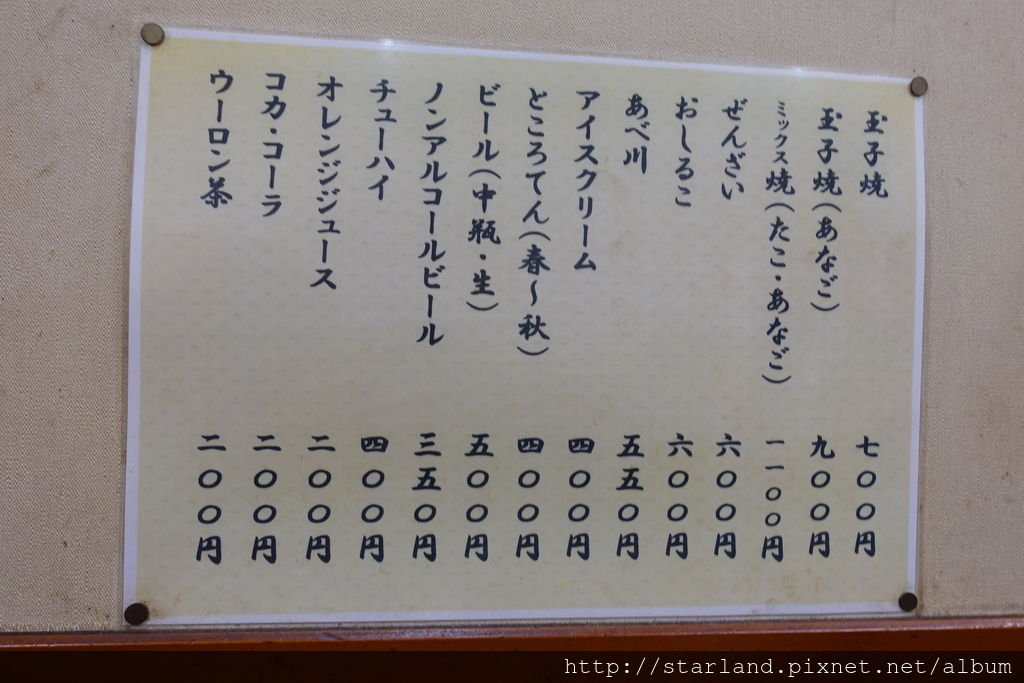 玉子焼 七〇〇円
玉子焼(あなご) 九〇〇円
ミックス焼(たこ・あなご) 一一〇〇円
ぜんざい 六〇〇円
おしるこ 六〇〇円
あべ川 五五〇円
アイスクリーム 四〇〇円
ところてん(春〜秋) 四〇〇円
ビール(中瓶・生) 五〇〇円
ノンアルコールビール 三五〇円
チューハイ 四〇〇円
オレンジジュース 二〇〇円
コカ・コーラ 二〇〇円
ウーロン茶 二〇〇円
http://starland.pixnet.net/album